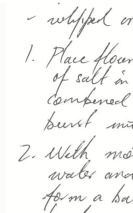 - whipped
1. Place flour
of salt in
combined
burst
2. With
water and
form a